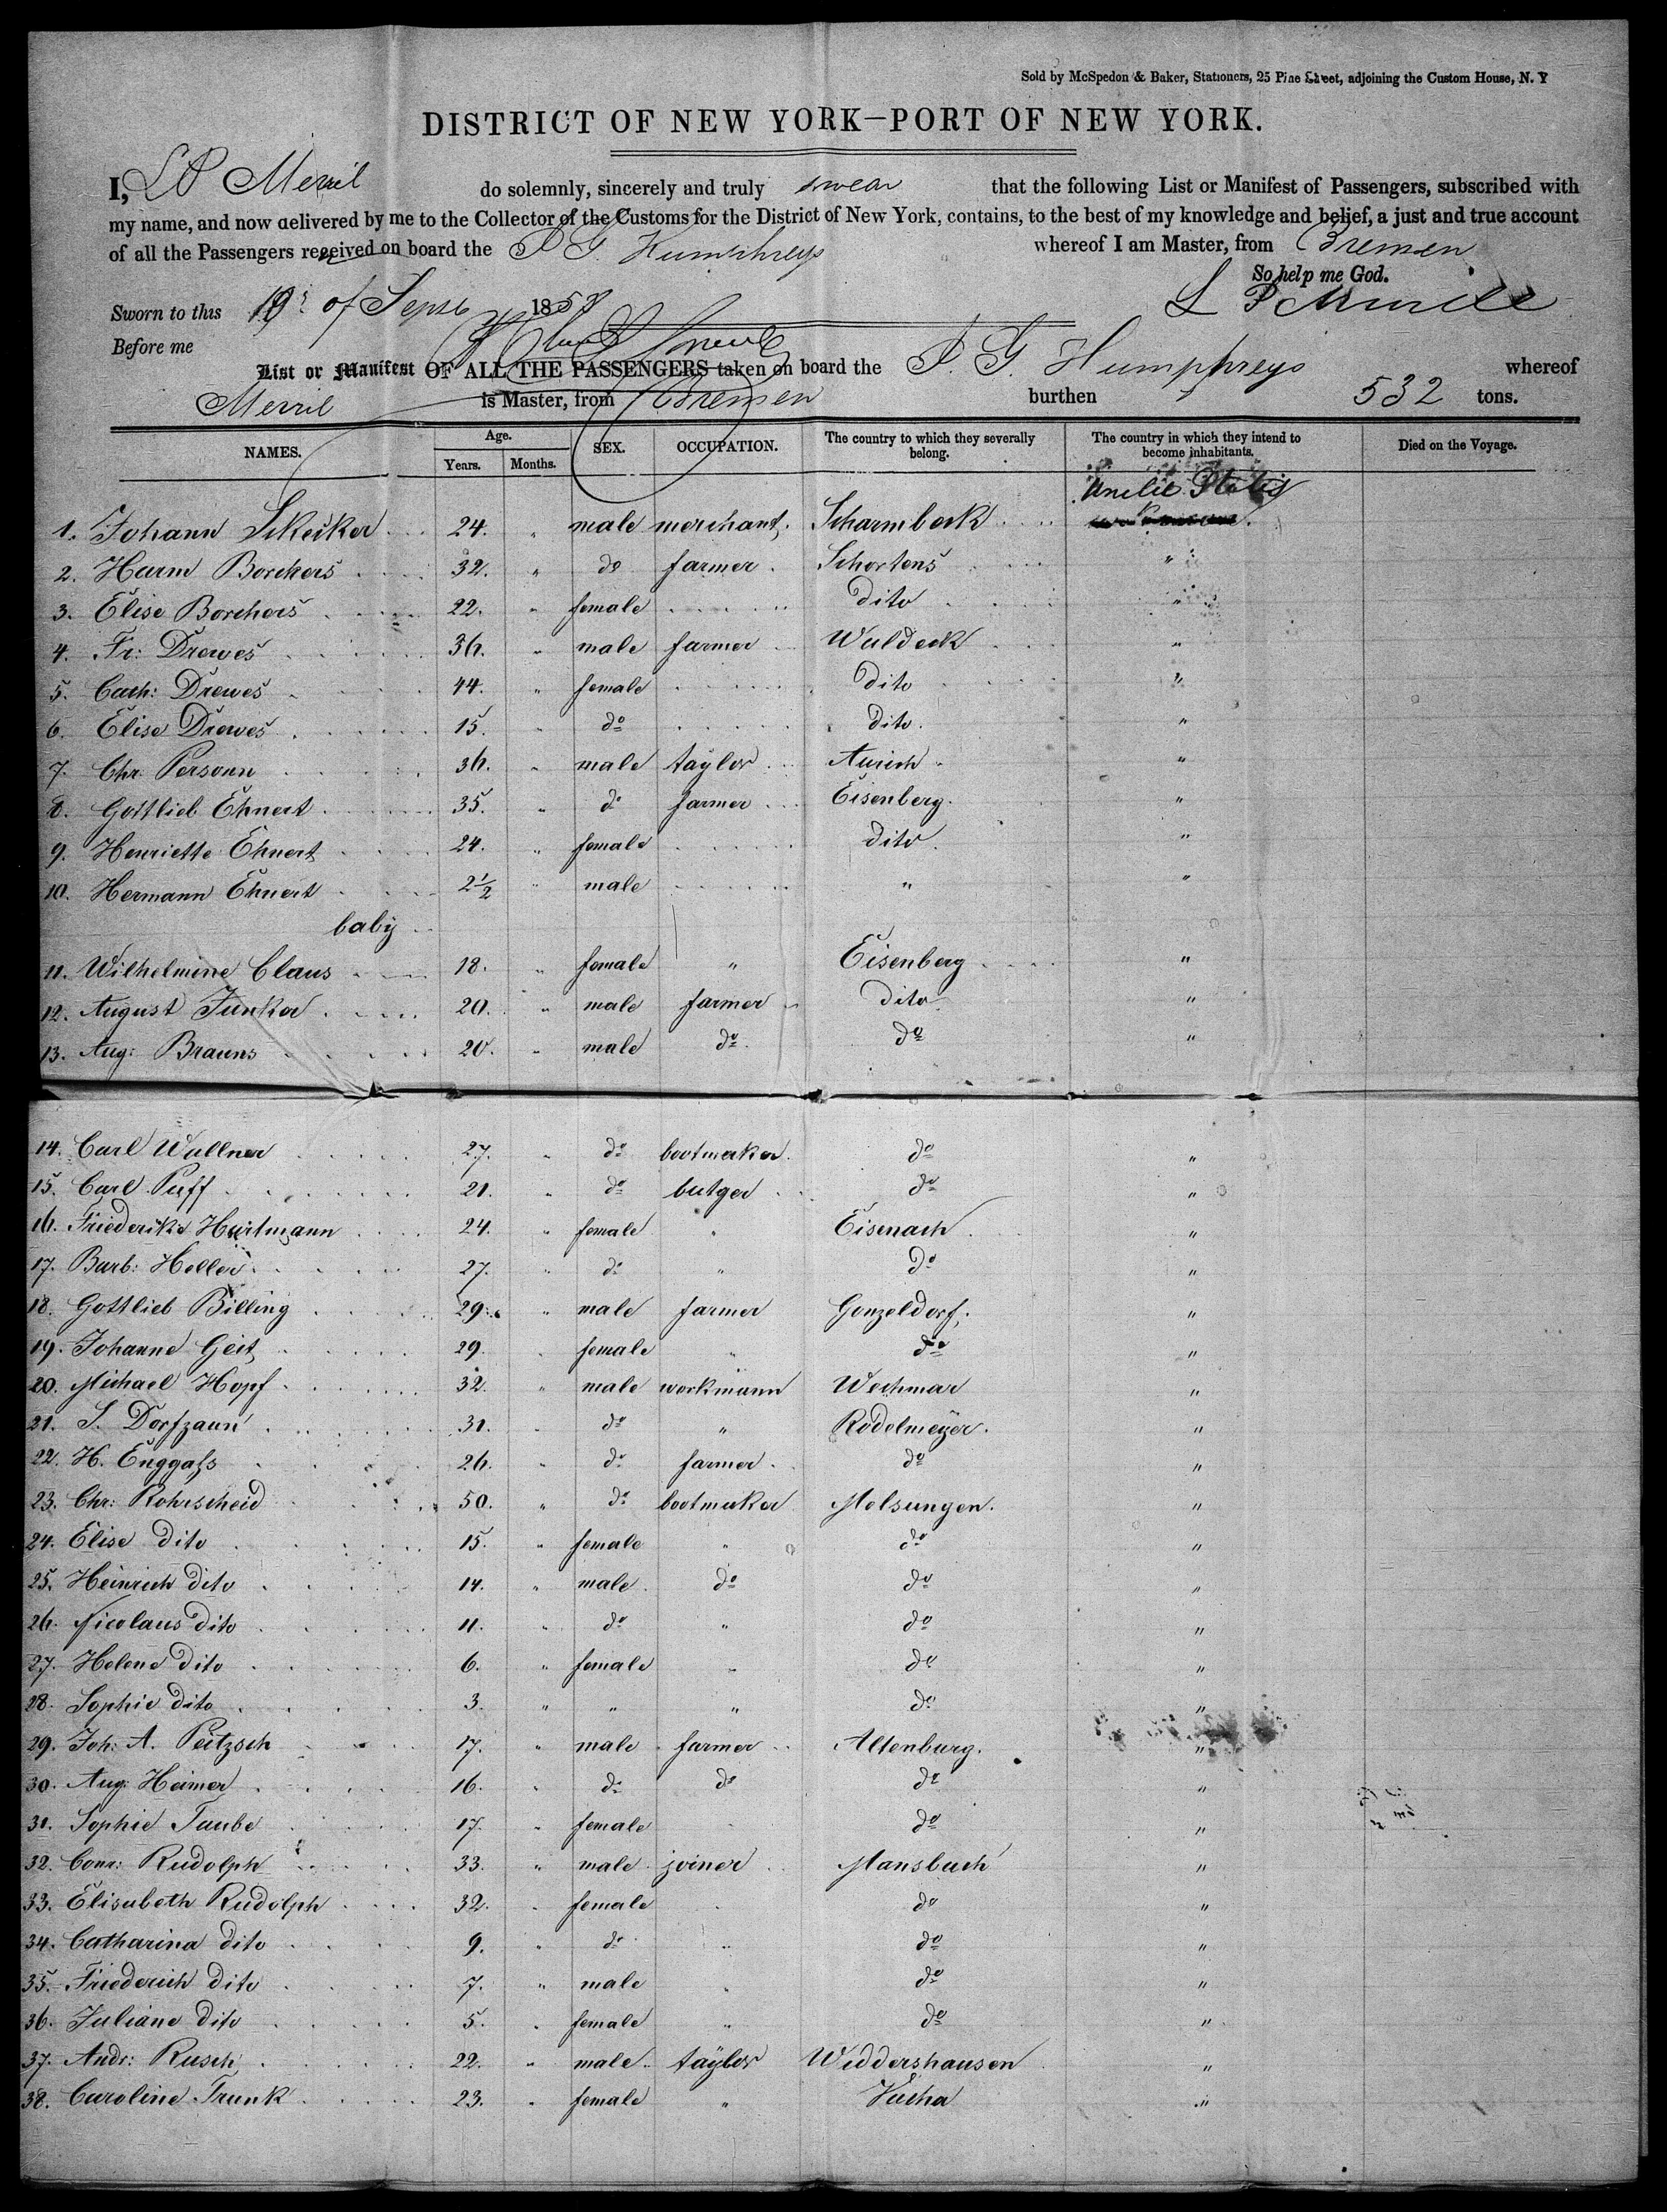 Sold by McSpedon & Baker, Stationers, 25 Pine Street, adjoining the Custom House, N. Y
DISTRICT OF NEW YORK—PORT OF NEW YORK.
I, L P Merril do solemnly, sincerely and truly swear that the following List or Manifest of Passengers, subscribed with
my name, and now delivered by me to the Collector of the Customs for the District of New York, contains, to the best of my knowledge and belief, a just and true account
of all the Passengers received on board the P. G. Humphreys whereof I am Master, from Bremen
So help me God.
Sworn to this of Sept 185 L P Merrill
Before me
List or Manifest OF ALL THE PASSENGERS taken on board the P. G. Humphreys whereof
Merril is Master, from Bremen burthen 532 tons.
NAMES. Age. Years. Months. SEX. OCCUPATION. The country to which they severally belong. The country in which they intend to become inhabitants. Died on the Voyage.
United States
1. Johann 24. " male merchant. Scharmbeck
2. Harm Borchers 32. " do farmer. Schortens "
3. Elise Borchers 22. " female dito "
4. Fr: Drewes 36. " male farmer Waldeck "
5. Cath: Drewes 44. " female dito "
6. Elise Drewes 15. " do dito. "
7. Chr. Personn 36. " male taylor Aurich "
8. Gottlieb Ehnert 35. " do farmer Eisenberg. "
9. Henriette Ehnert 24. " female dito. "
10. Hermann Ehnert 2½ " male " "
baby
11. Wilhelmine Claus 18. " female " Eisenberg "
12. August Junker 20. " male farmer dito "
13. Aug: Brauns 20. " male do do "
14. Carl Wallner 27. " do bootmaker. do "
15. Carl Puff 21. " do butger do "
16. Friederike Hartmann 24. " female " Eisenach "
17. Barb: Heller 27. " do " do "
18. Gottlieb Billing 29. " male farmer Gonzeldorf. "
19. Johanne Geit 29. " female " do "
20. Michael Hopf 32. " male workmann Wechmar "
21. S. Dorfzaun 31. " do " Rodelmeyer. "
22. H. Enggass 26. " do farmer. do "
23. Chr: Rohrscheid 50. " do bootmaker Melsungen. "
24. Elise dito 15. " female " do "
25. Heinrich dito 14. " male. do do "
26. Nicolaus dito 11. " do " do "
27. Helene dito 6. " female " do "
28. Sophie dito 3. " " " do "
29. Joh: A. Peitzsch 17. " male farmer Altenburg. "
30. Aug: Heimer 16. " do do do "
31. Sophie Taube 17. " female " do "
32. Conr: Rudolph 33. " male joiner Mansbach "
33. Elisabeth Rudolph 32. " female do "
34. Catharina dito 9. " do " do "
35. Friederich dito 7. " male " do "
36. Juliane dito 5. " female " do "
37. Andr: Rusch 22. " male taylor Widdershausen "
38. Caroline Trunk 23. " female " Vacha "